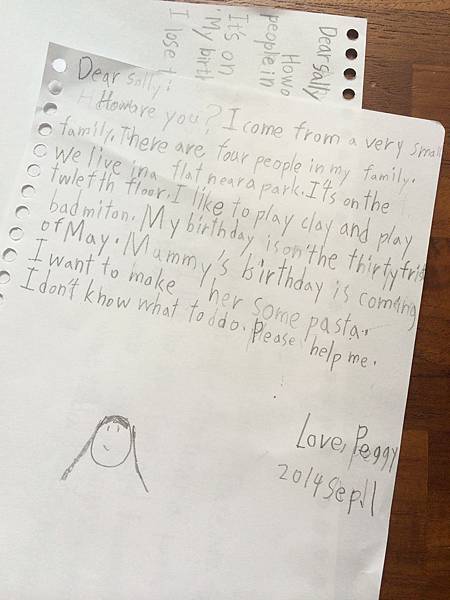 Dear sally:
Howare you? I come from a very small
family. There are four people in my family.
We live ina flat neara park. It's on the
twletth floor. I like to play clay and play
badmiton. My birthday is on the thirtyfrist
of May. Mummy's birthday is coming
I want to make her some pasta.
I don't know what toddo. Please help me.
Love, Peggy
2014 Sep.11
Dear sally
Howa
people in
It's on
My birth
I lose t